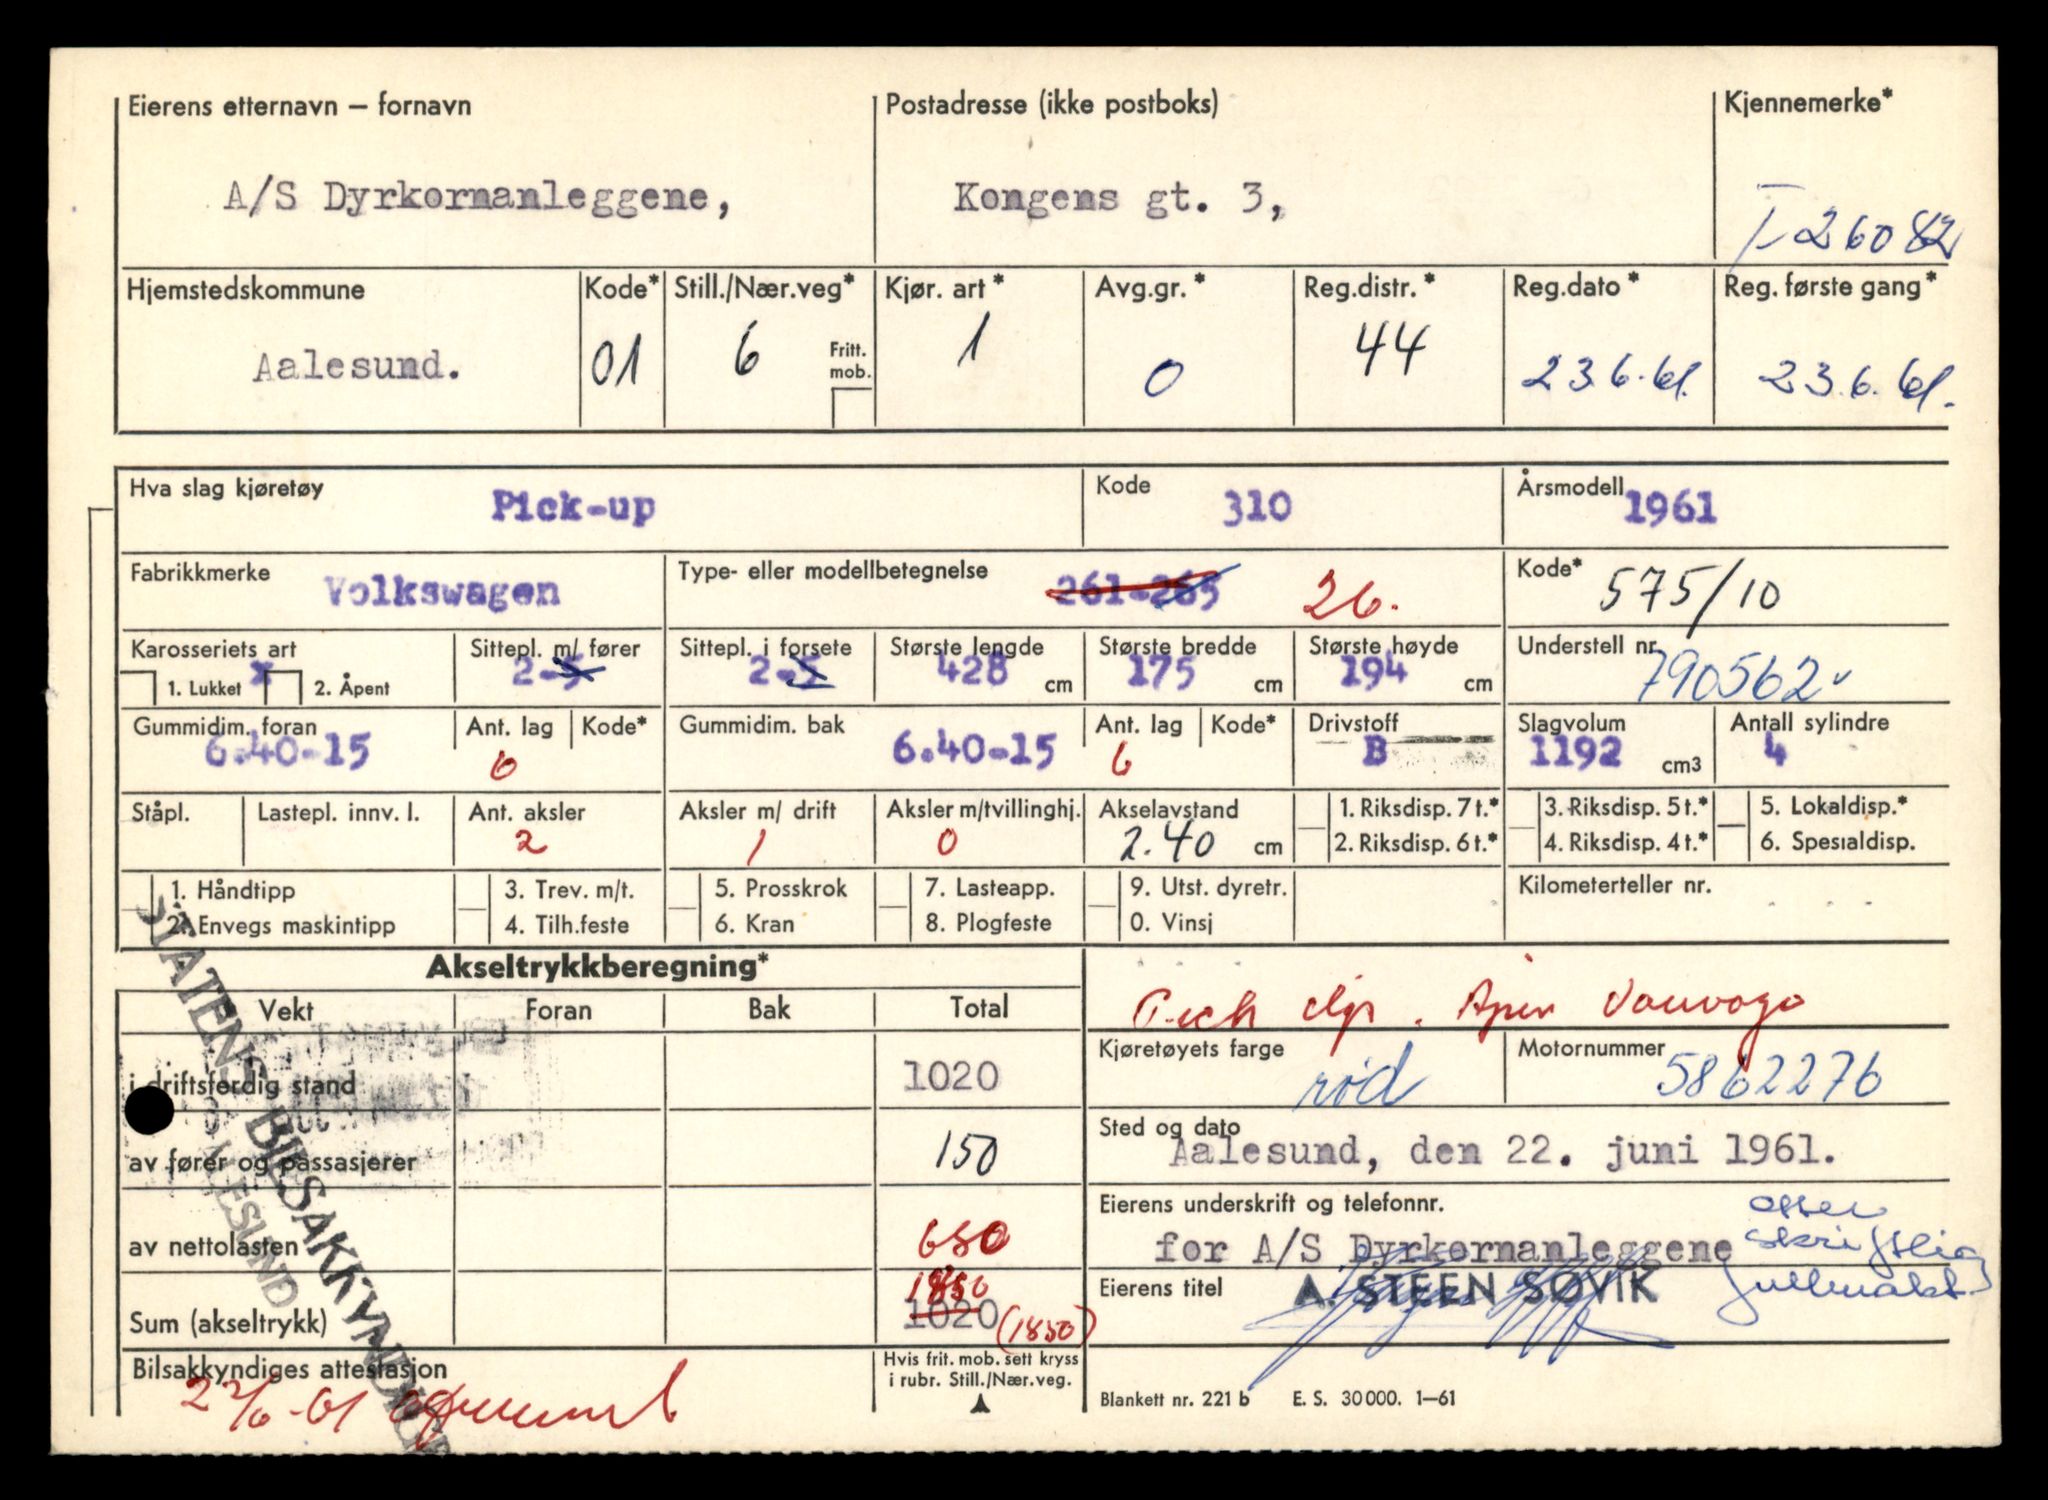 Eierens etternavn — fornavn
Postadresse (ikke postboks)
Kjennemerke*
A/S Dyrkornanleggene,
Kongens gt. 3,
T-26082
Hjemstedskommune
Kode*
Still./Nær.veg*
Kjør. art*
Avg.gr.*
Reg.distr.*
Reg.dato*
Reg. første gang*
Aalesund.
01
6
Fritt. mob.
1
0
44
23.6.61.
23.6.61.
Hva slag kjøretøy
Pick-up
Kode
310
Årsmodell
1961
Fabrikkmerke
Volkswagen
Type- eller modellbetegnelse
261-265
26.
Kode*
575/10
Karosseriets art
Sittepl. m/ fører
Sittepl. i forsete
Største lengde
Største bredde
Største høyde
Understell nr.
1. Lukket
x
2. Åpent
2-5
2-5
428 cm
175 cm
194 cm
790562
Gummidim. foran
Ant. lag
Kode*
Gummidim. bak
Ant. lag
Kode*
Drivstoff
Slagvolum
Antall sylindre
6.40-15
6
6.40-15
6
B
1192 cm3
4
Ståpl.
Lastepl. innv. l.
Ant. aksler
Aksler m/ drift
Aksler m/tvillinghj.
Akselavstand
1. Riksdisp. 7 t.*
3. Riksdisp. 5 t.*
5. Lokaldisp.*
2
1
0
2.40 cm
2. Riksdisp. 6 t.*
4. Riksdisp. 4 t.*
6. Spesialdisp.
1. Håndtipp
3. Trev. m/t.
5. Prosskrok
7. Lasteapp.
9. Utst. dyretr.
Kilometerteller nr.
2. Envegs maskintipp
4. Tilh.feste
6. Kran
8. Plogfeste
0. Vinsj
Akseltrykkberegning*
Vekt
Foran
Bak
Total
Kjøretøyets farge
rød
Motornummer
5862276
i driftsferdig stand
1020
Sted og dato
Aalesund, den 22. juni 1961.
av fører og passasjerer
150
Eierens underskrift og telefonnr.
etter
skriftlig
fullmakt
av nettolasten
680
for A/S Dyrkornanleggene
Eierens titel
A. STEEN SØVIK
1850
Sum (akseltrykk)
1020
(1850)
Bilsakkyndiges attestasjon
22/6-61
Hvis frit. mob. sett kryss
i rubr. Still./Nær.veg.
Blankett nr. 221 b
E. S. 30000. 1—61
STATENS BILSAKKYNDIGE
ÅLESUND